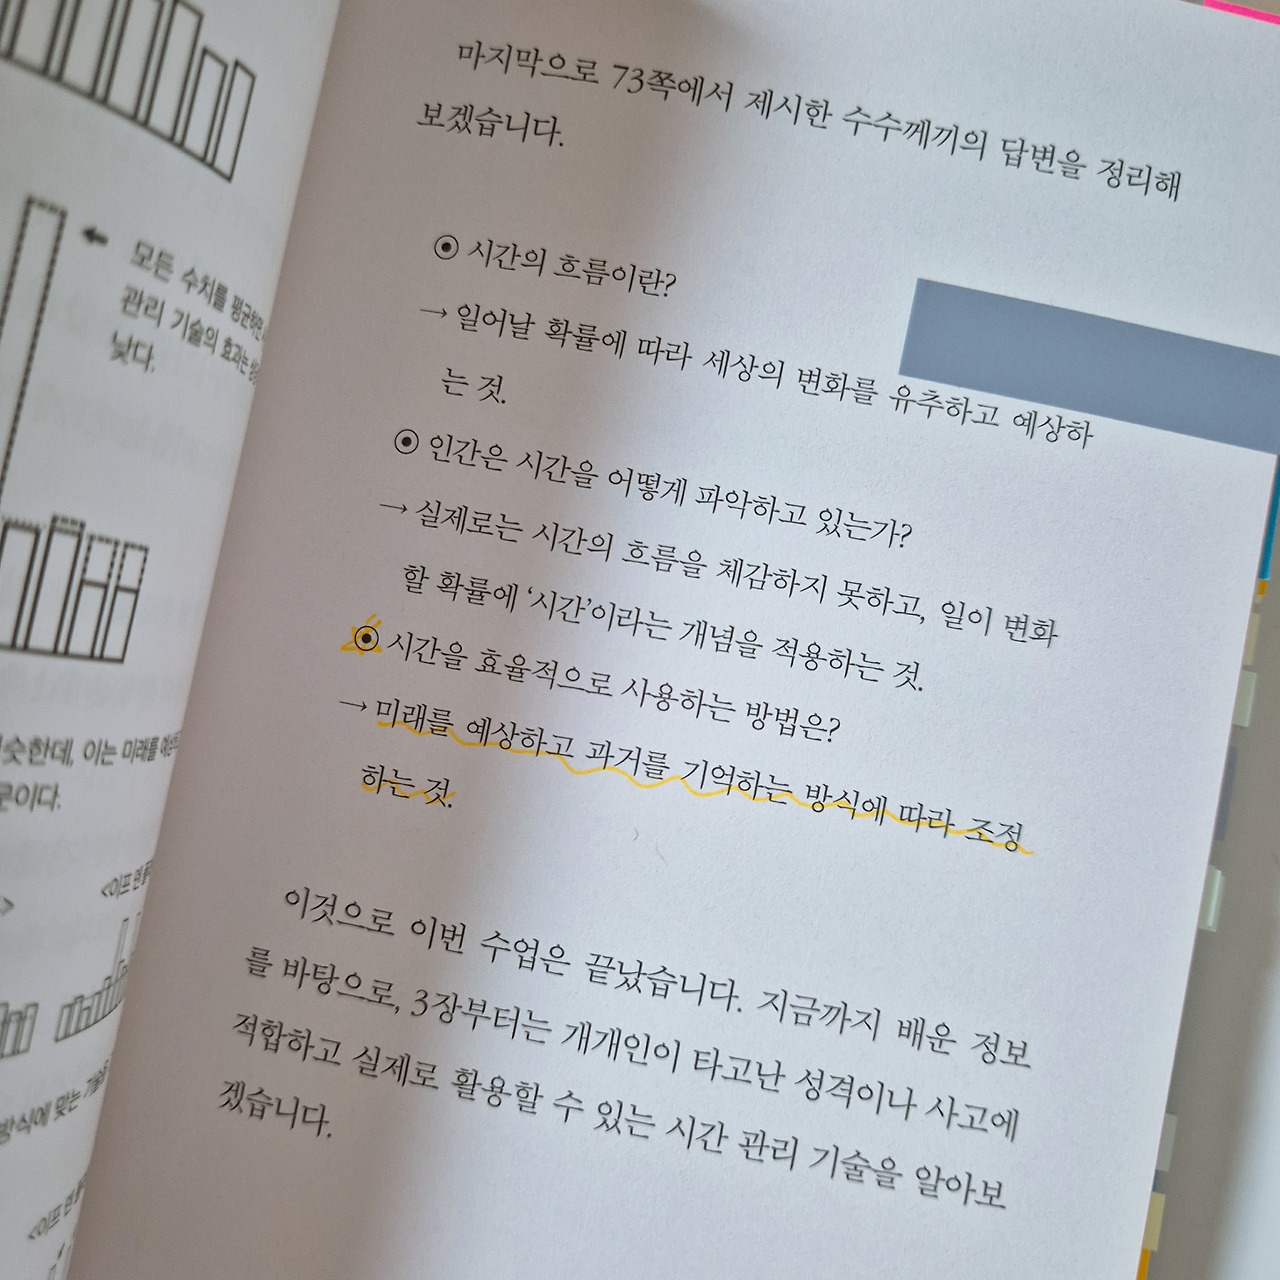 모든 수치를 평균하면
관리 기술의 효과는
낮다.
슷한데, 이는 미래를
문이다.
<이프 덴 플
방식에 맞는 기술
<이프 덴 플
마지막으로 73쪽에서 제시한 수수께끼의 답변을 정리해
보겠습니다.
⊙ 시간의 흐름이란?
→ 일어날 확률에 따라 세상의 변화를 유추하고 예상하
는 것.
⊙ 인간은 시간을 어떻게 파악하고 있는가?
→ 실제로는 시간의 흐름을 체감하지 못하고, 일이 변화
할 확률에 ‘시간’이라는 개념을 적용하는 것.
⊙ 시간을 효율적으로 사용하는 방법은?
→ 미래를 예상하고 과거를 기억하는 방식에 따라 조정
하는 것.
이것으로 이번 수업은 끝났습니다. 지금까지 배운 정보
를 바탕으로, 3장부터는 개개인이 타고난 성격이나 사고에
적합하고 실제로 활용할 수 있는 시간 관리 기술을 알아보
겠습니다.